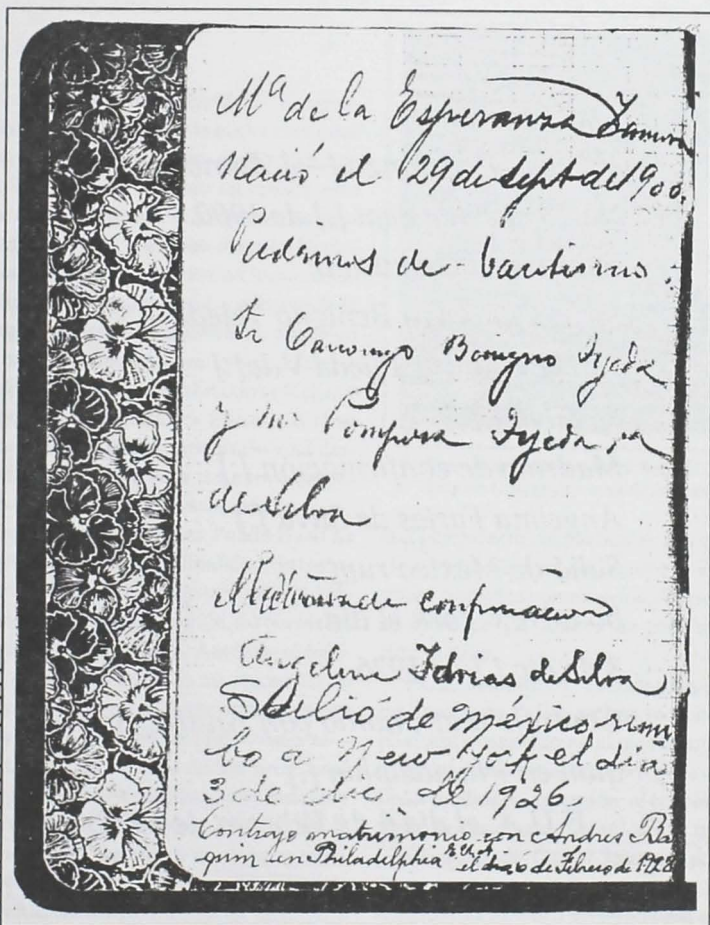 Mª de la Esperanza
Nació el 29 de Sept de 1900.
Padrinos de bautismo.
Sr Canonigo Tejeda
y Tejeda
de Silva
Madrina de confirmacion
de Silva
Salió de México rum
bo a New York el dia
3 de de 1926.
Contrajo matrimonio con Andres
en Philadelphia E.U.A. el dia 6 de Febrero de 1928